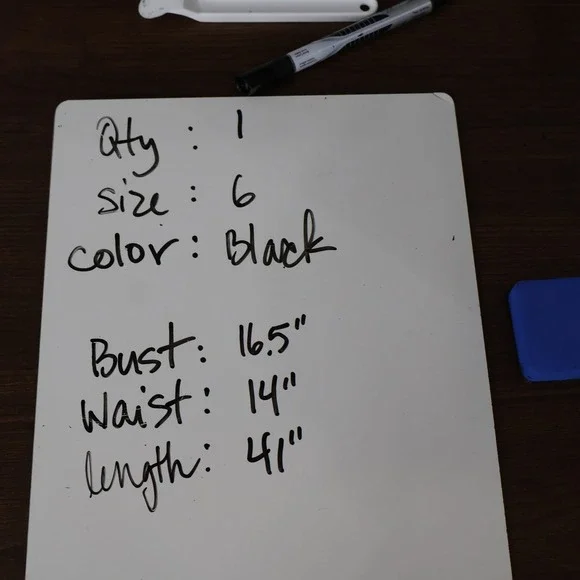 Qty : 1
size : 6
color : Black
Bust : 16.5"
Waist : 14"
length : 41"